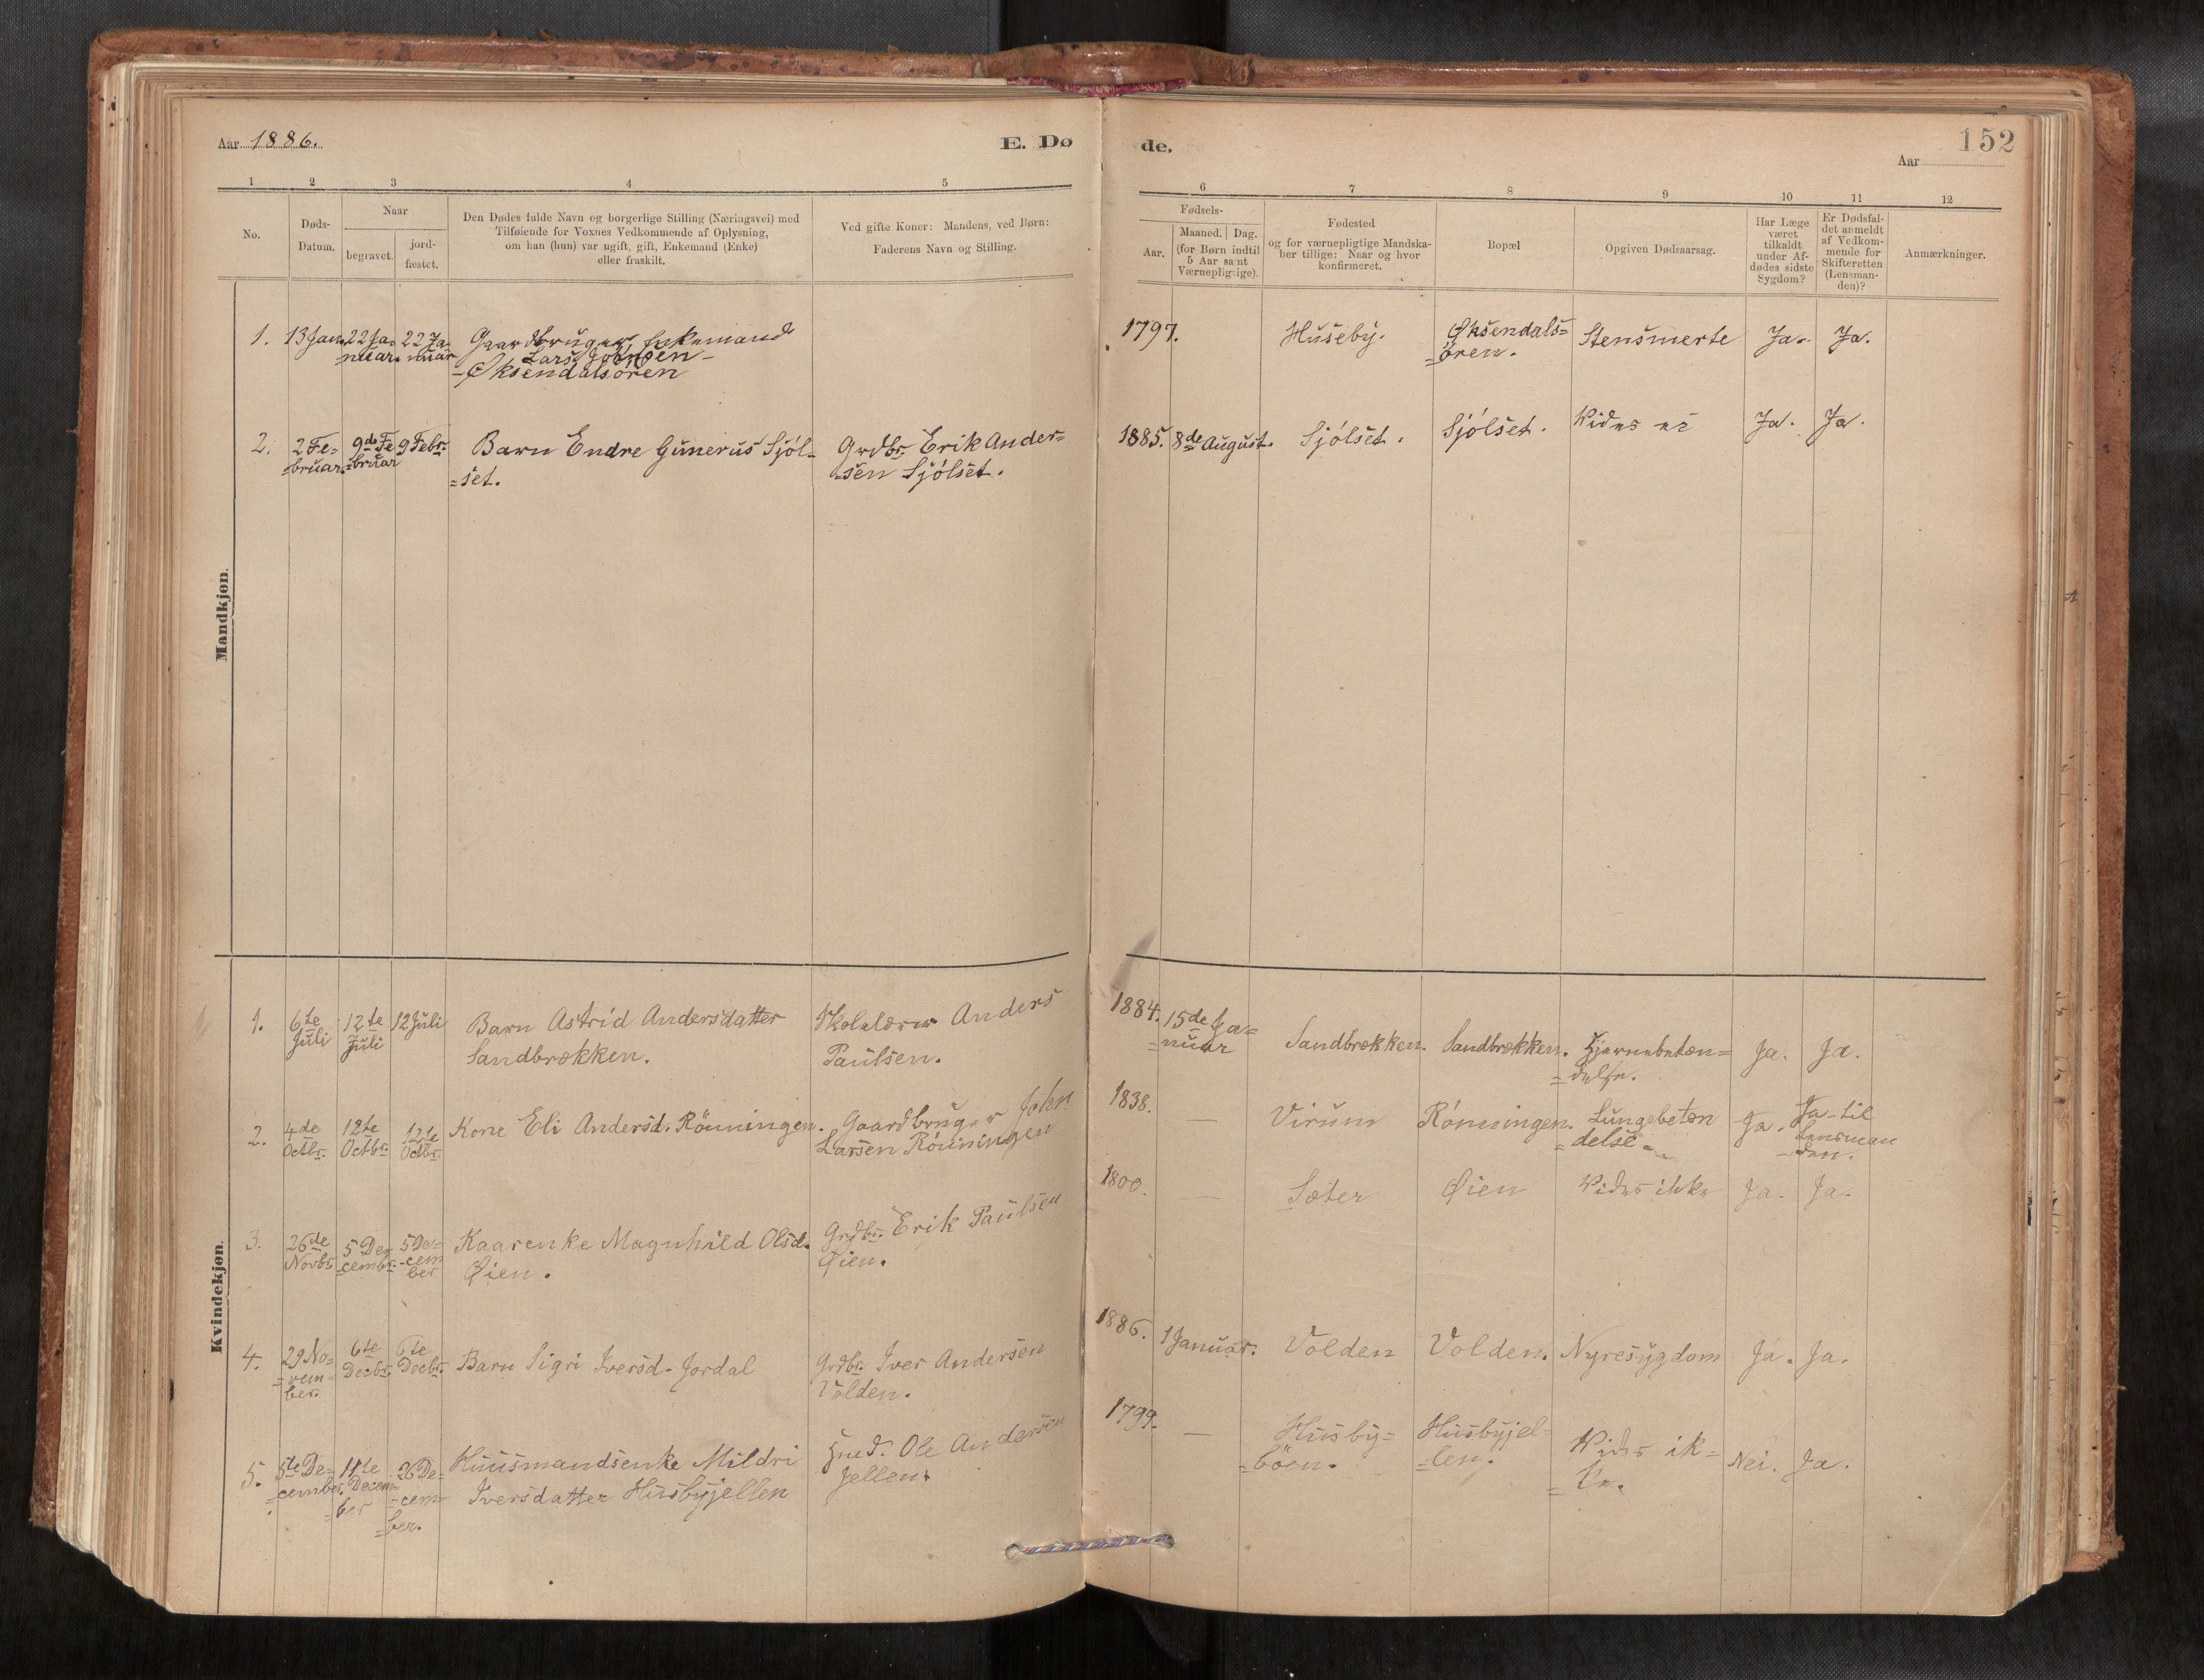 Aar 1886.
E. Dø
de.
152
Aar
1 2 3 4 5
6 7 8 9 10 11 12
No.
Døds-
Datum.
Naar
begravet.
jord-
fæstet.
Den Dødes fulde Navn og borgerlige Stilling (Næringsvei) med
Tilføiende for Voxnes Vedkommende af Oplysning,
om han (hun) var ugift, gift, Enkemand (Enke)
eller fraskilt.
Ved gifte Koner: Mandens, ved Børn:
Faderens Navn og Stilling.
Fødsels-
Aar.
Maaned. Dag.
(for Børn indtil
5 Aar samt
Værnepligtige).
Fødested
og for værnepligtige Mandska-
ber tillige: Naar og hvor
konfirmeret.
Bopæl
Opgiven Dødsaarsag.
Har Læge
været
tilkaldt
under Af-
dødes sidste
Sygdom?
Er Dødsfal-
det anmeldt
af Vedkom-
mende for
Skifteretten
(Lensman-
den)?
Anmærkninger.
Mandkjøn.
1.
13 Jan.
22 Ja-
nuar.
22 Ja-
nuar
Gaardbruger Enkemand
Lars Johnsen -
- Øksendalsören
1797.
Huseby.
Øksendals=
=ören.
Stensmerte
Ja.
Ja.
2.
2 Fe-
=bruar.
9de Fe
=bruar
9 Febr.
Barn Endre Gunerus Sjöl-
=set.
Grdbr. Erik Ander=
=sen Sjölset.
1885.
8de August.
Sjölset.
Sjölset.
Vides
Ja.
Ja.
Kvindekjøn.
1.
6te
Juli
12te
Juli
12 Juli
Barn Astrid Andersdatter
Sandbrækken.
Skolelærer Anders
Paulsen.
1884.
15de Ja=
=nuar
Sandbrækken.
Sandbrækken.
Hjernebetæn=
=delse.
Ja.
Ja.
2.
4de
Octbr.
12te
Octbr.
12te
Octbr.
Kone Eli Andersd. Rönningen.
Gaardbruger John
Larsen Rönningen
1838.
—
Virum
Rönningen.
Lungebetæn
=delse -
Ja.
Ja - til
Lensman
- den.
3.
26de
Novbr.
5 De=
=cembr.
5 De=
-cem
ber
Kaarenke Magnhild Olsd.
Øien.
Grdbr. Erik Paulsen
Øien.
1800.
—
Sæter
Øien
Vides ikke
Ja.
Ja.
4.
29 No=
=vem
ber.
6te
Decbr.
6te
Decbr.
Barn Sigri Iversd. Jordal
Grdbr. Iver Andersen
Volden.
1886.
1 Januar.
Volden
Volden.
Nyresygdom
Ja.
Ja.
5.
5te De=
=cember.
11te
Decem=
=ber
26 De=
-cem=
=ber.
Huusmandsenke Mildri
Iversdatter Husbyjellen
Hmd. Ole Andersen
Jellen.
1799.
—
Husby=
=böen.
Husbyjel-
=len.
Vides ik=
=ke.
Nei.
Ja.